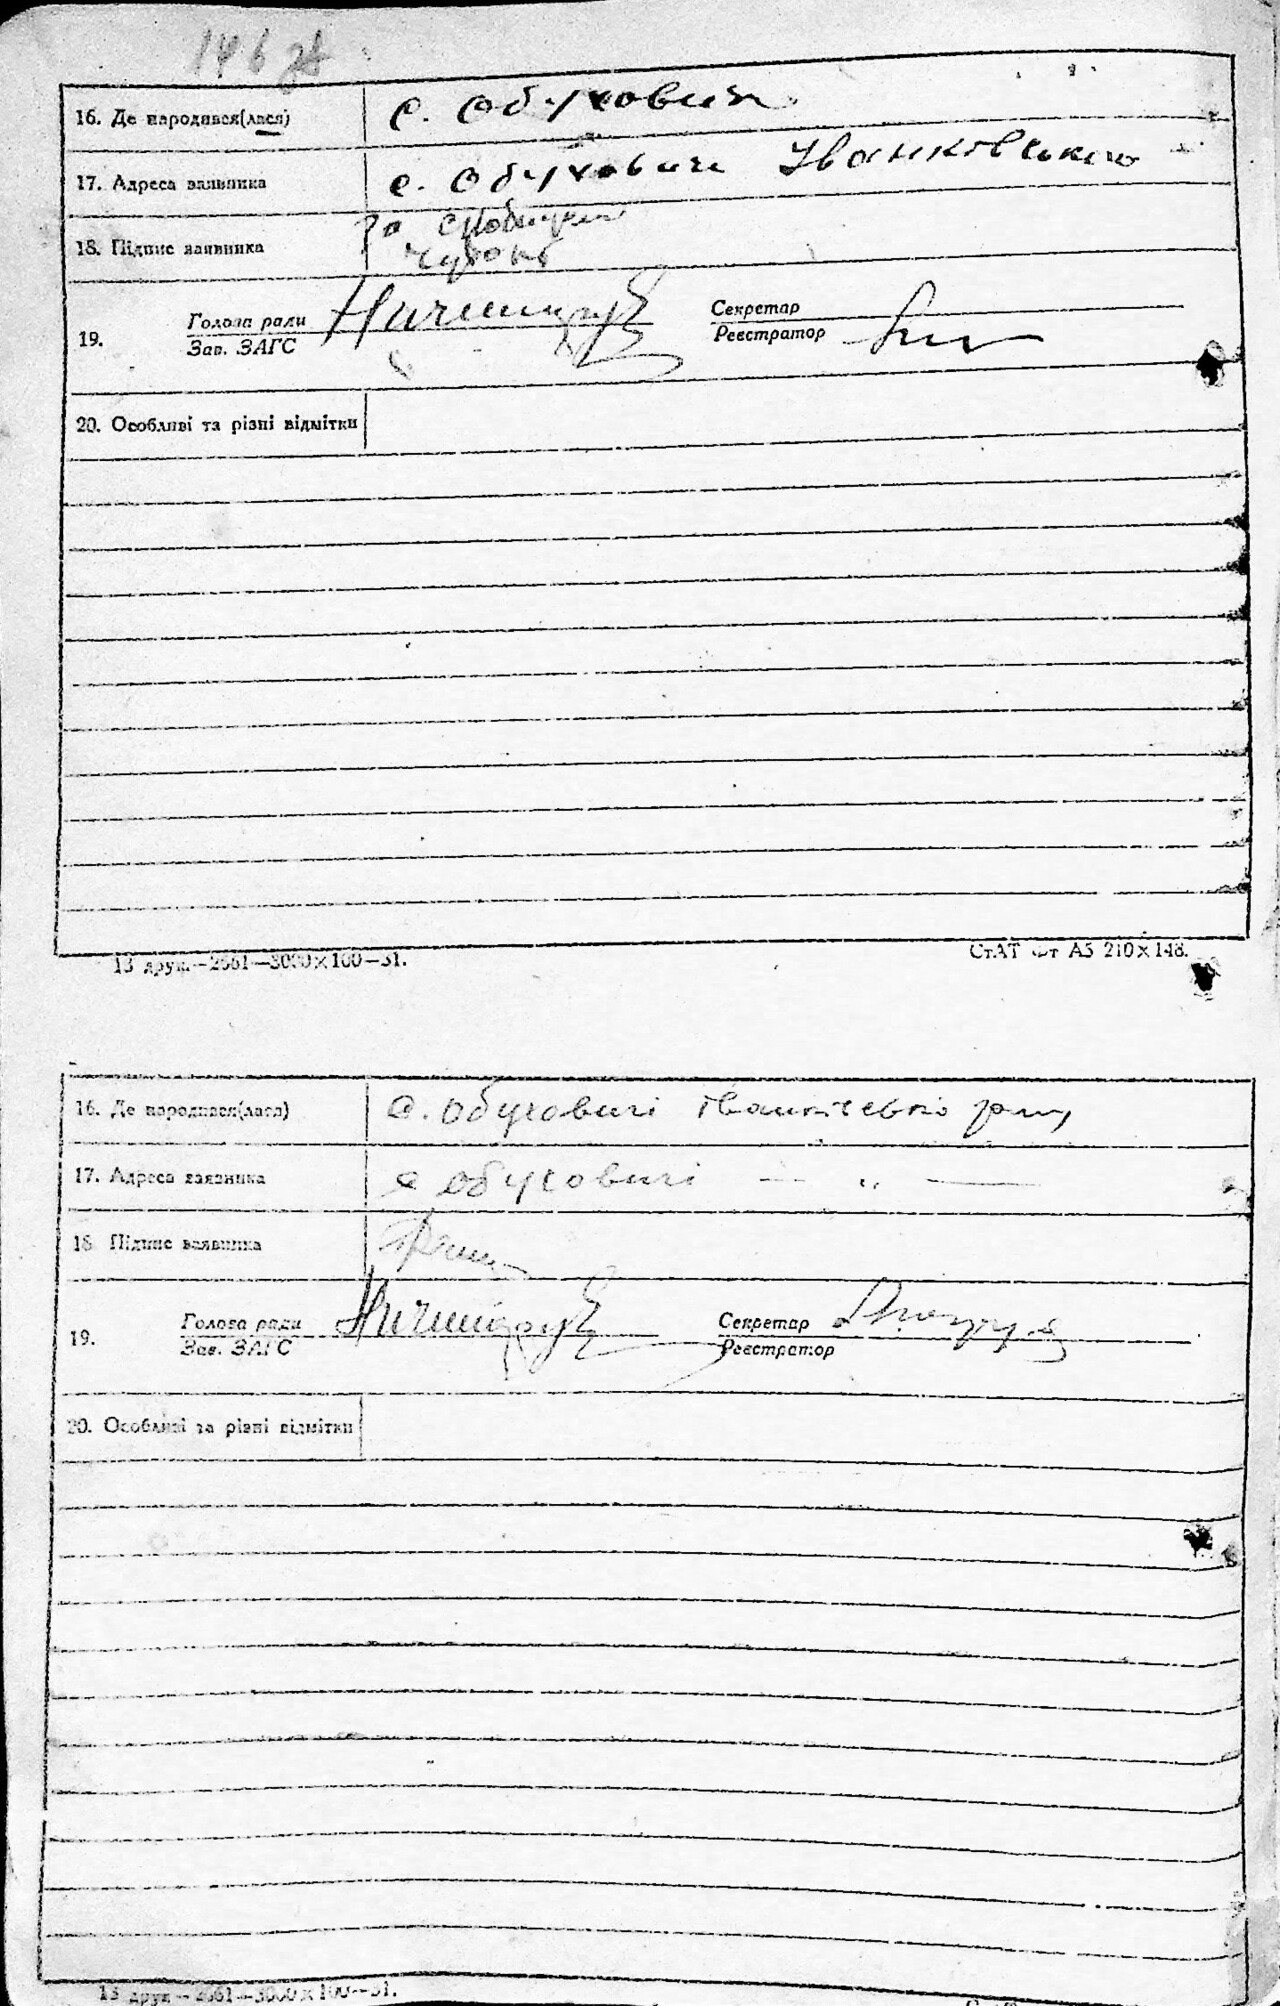 146 зв
16. Де народився(лася) с. Обуховичі
17. Адреса заявника с. Обуховичі Іванковського
18. Підпис заявника за
19. Голова ради Секретар
Зав. ЗАГС Реєстратор
20. Особливі та різні відмітки
13 друк.—2661—3000×100—31. СтАТ Фт А5 210×148.
16. Де народився(лася) с. Обуховичі Іванківсько
17. Адреса заявника с Обуховичі — „ —
18. Підпис заявника
19. Голова ради Секретар
Зав. ЗАГС Реєстратор
20. Особливі та різні відмітки
13 друк.—2661—3000×100—31.